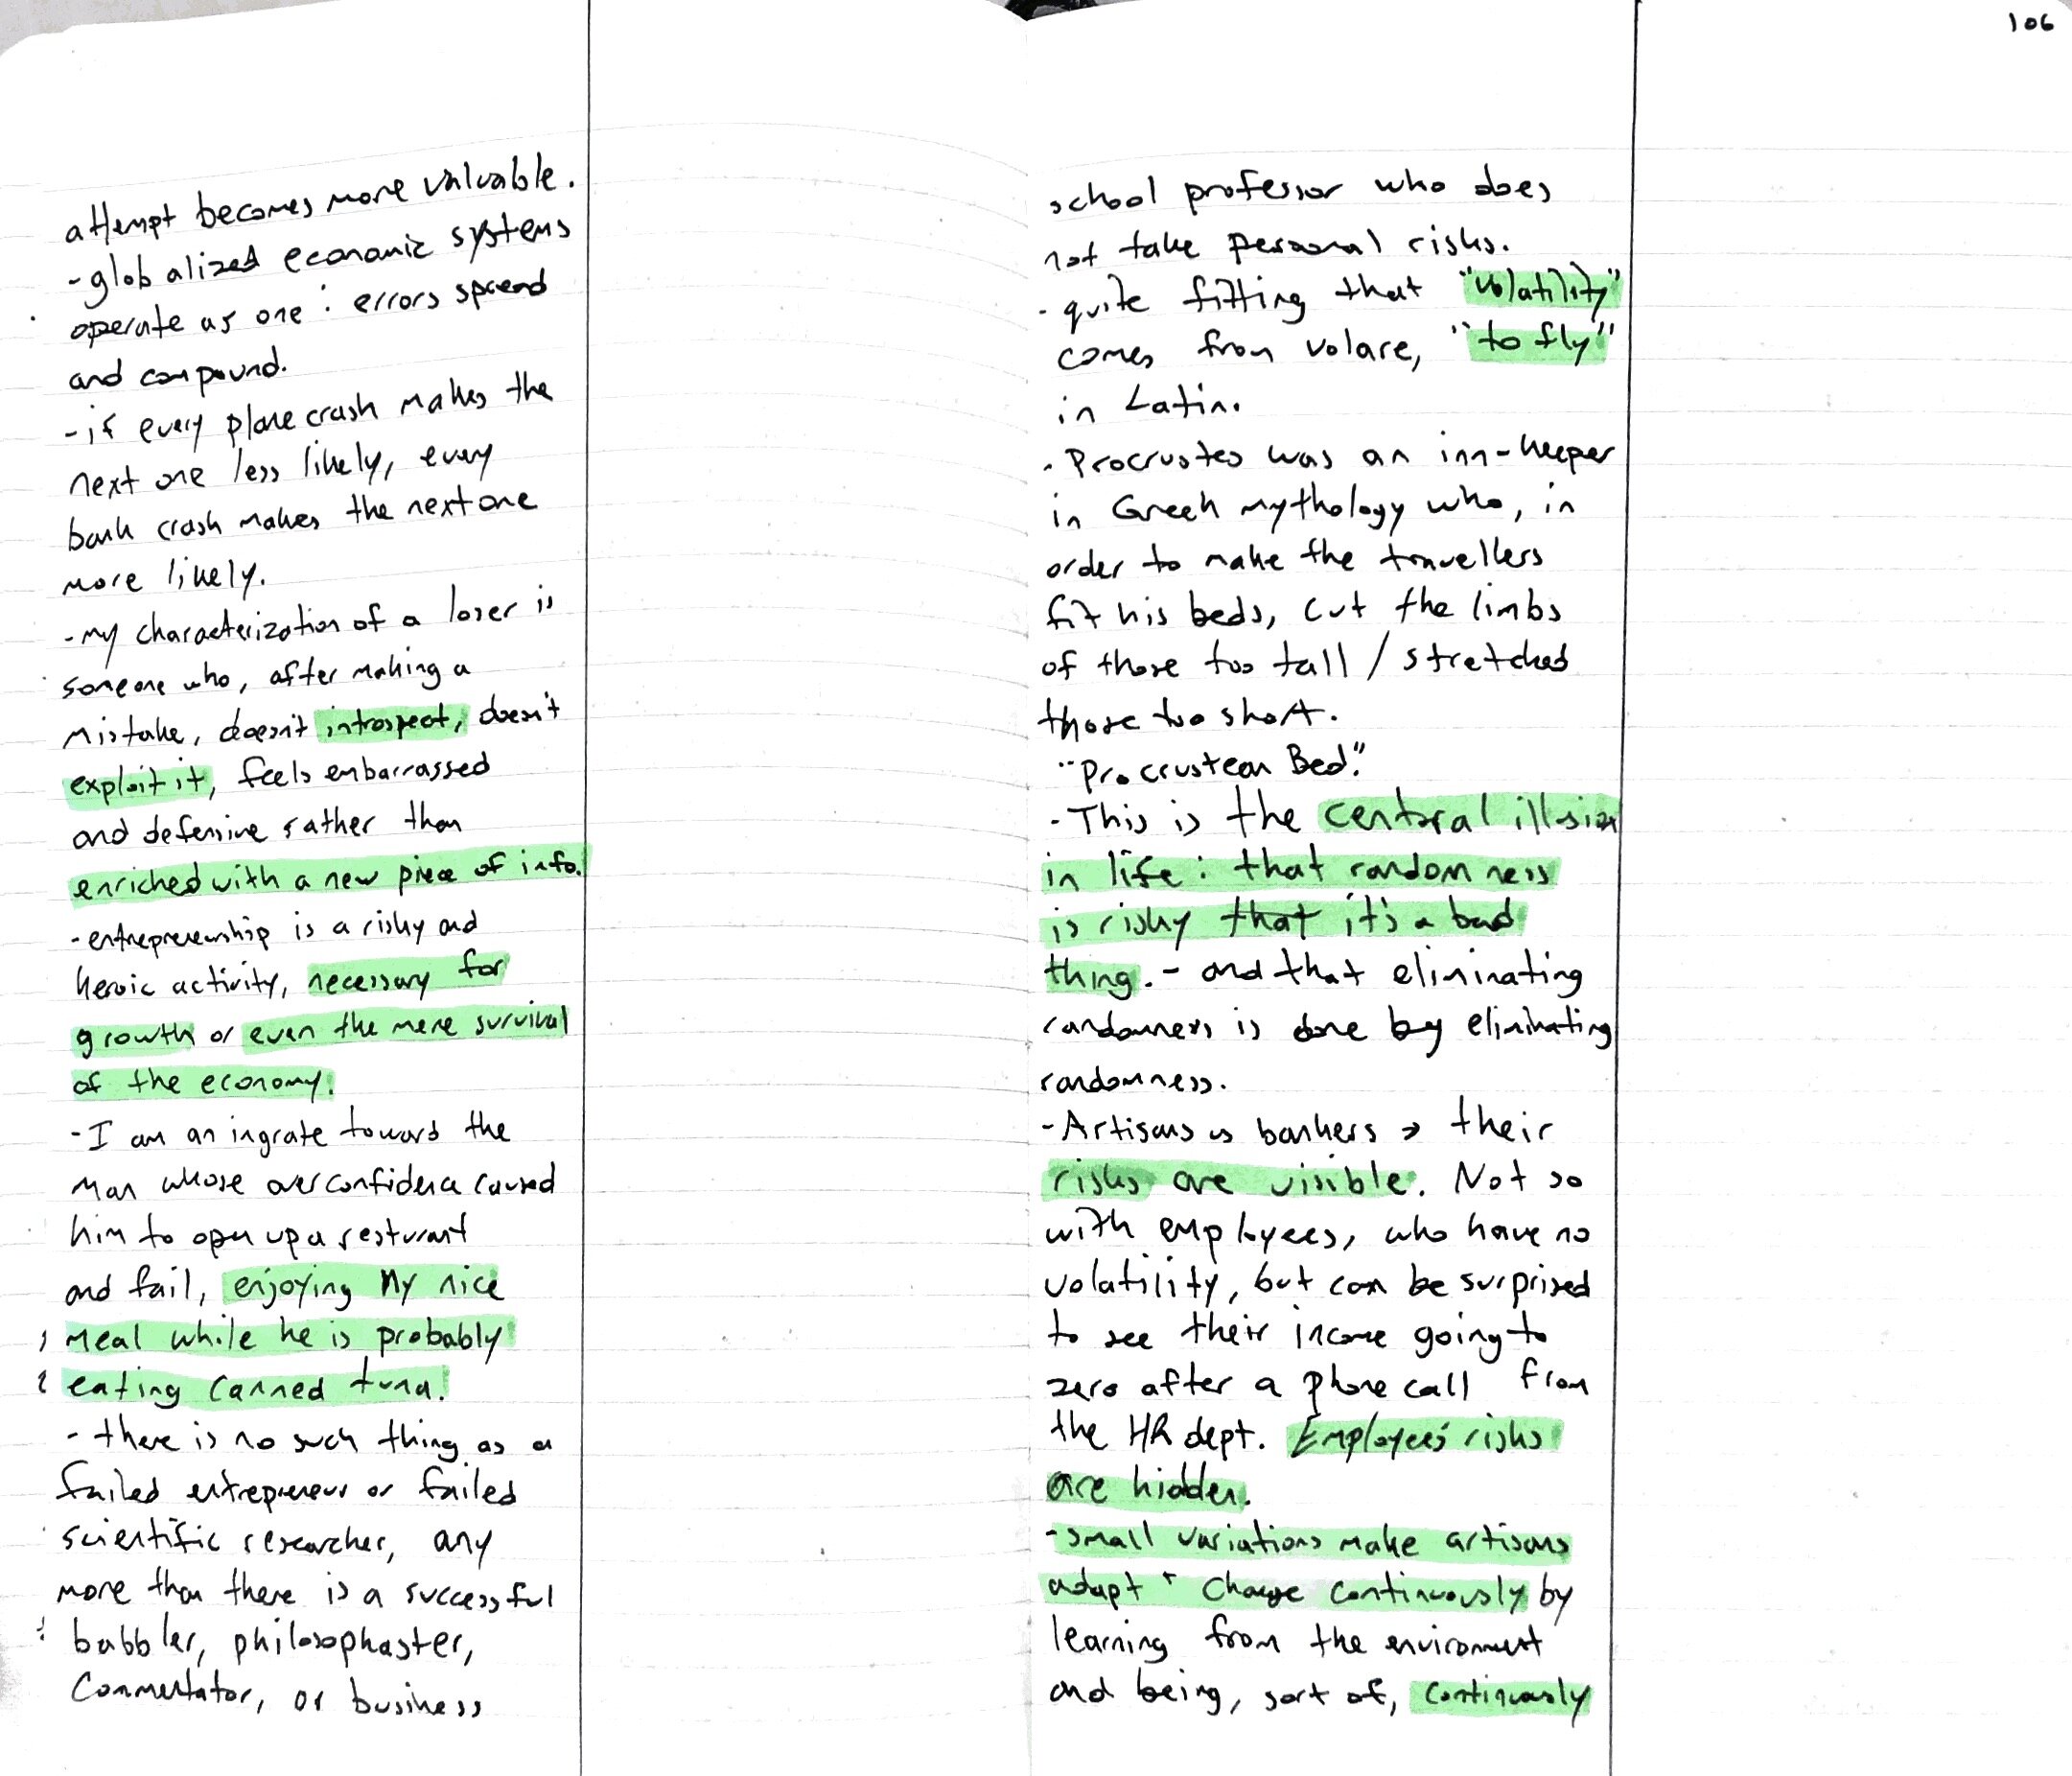 attempt becomes more valuable.
- globalized economic systems
operate as one : errors spread
and compound.
- if every plane crash makes the
next one less likely, every
bank crash makes the next one
more likely.
- my characterization of a loser is
someone who, after making a
mistake, doesn't introspect, doesn't
exploit it, feels embarrassed
and defensive rather than
enriched with a new piece of info.
- entrepreneurship is a risky and
heroic activity, necessary for
growth or even the mere survival
of the economy.
- I am an ingrate toward the
man whose overconfidence caused
him to open up a resturant
and fail, enjoying my nice
meal while he is probably
eating canned tuna.
- there is no such thing as a
failed entrepreneur or failed
scientific researcher, any
more than there is a successful
babbler, philosophaster,
commentator, or business
106
school professor who does
not take personal risks.
- quite fitting that "volatility"
comes from volare, "to fly"
in Latin.
- Procrustes was an inn-keeper
in Greek mythology who, in
order to make the travellers
fit his beds, cut the limbs
of those too tall / stretched
those too short.
"Procrustean Bed."
- This is the central illusion
in life : that randomness
is risky that it's a bad
thing. - and that eliminating
randomness is done by eliminating
randomness.
- Artisans vs bankers → their
risks are visible. Not so
with employees, who have no
volatility, but can be surprised
to see their income going to
zero after a phone call from
the HR dept. Employees' risks
are hidden.
- small variations make artisans
adapt + change continuously by
learning from the enviroment
and being, sort of, continuously